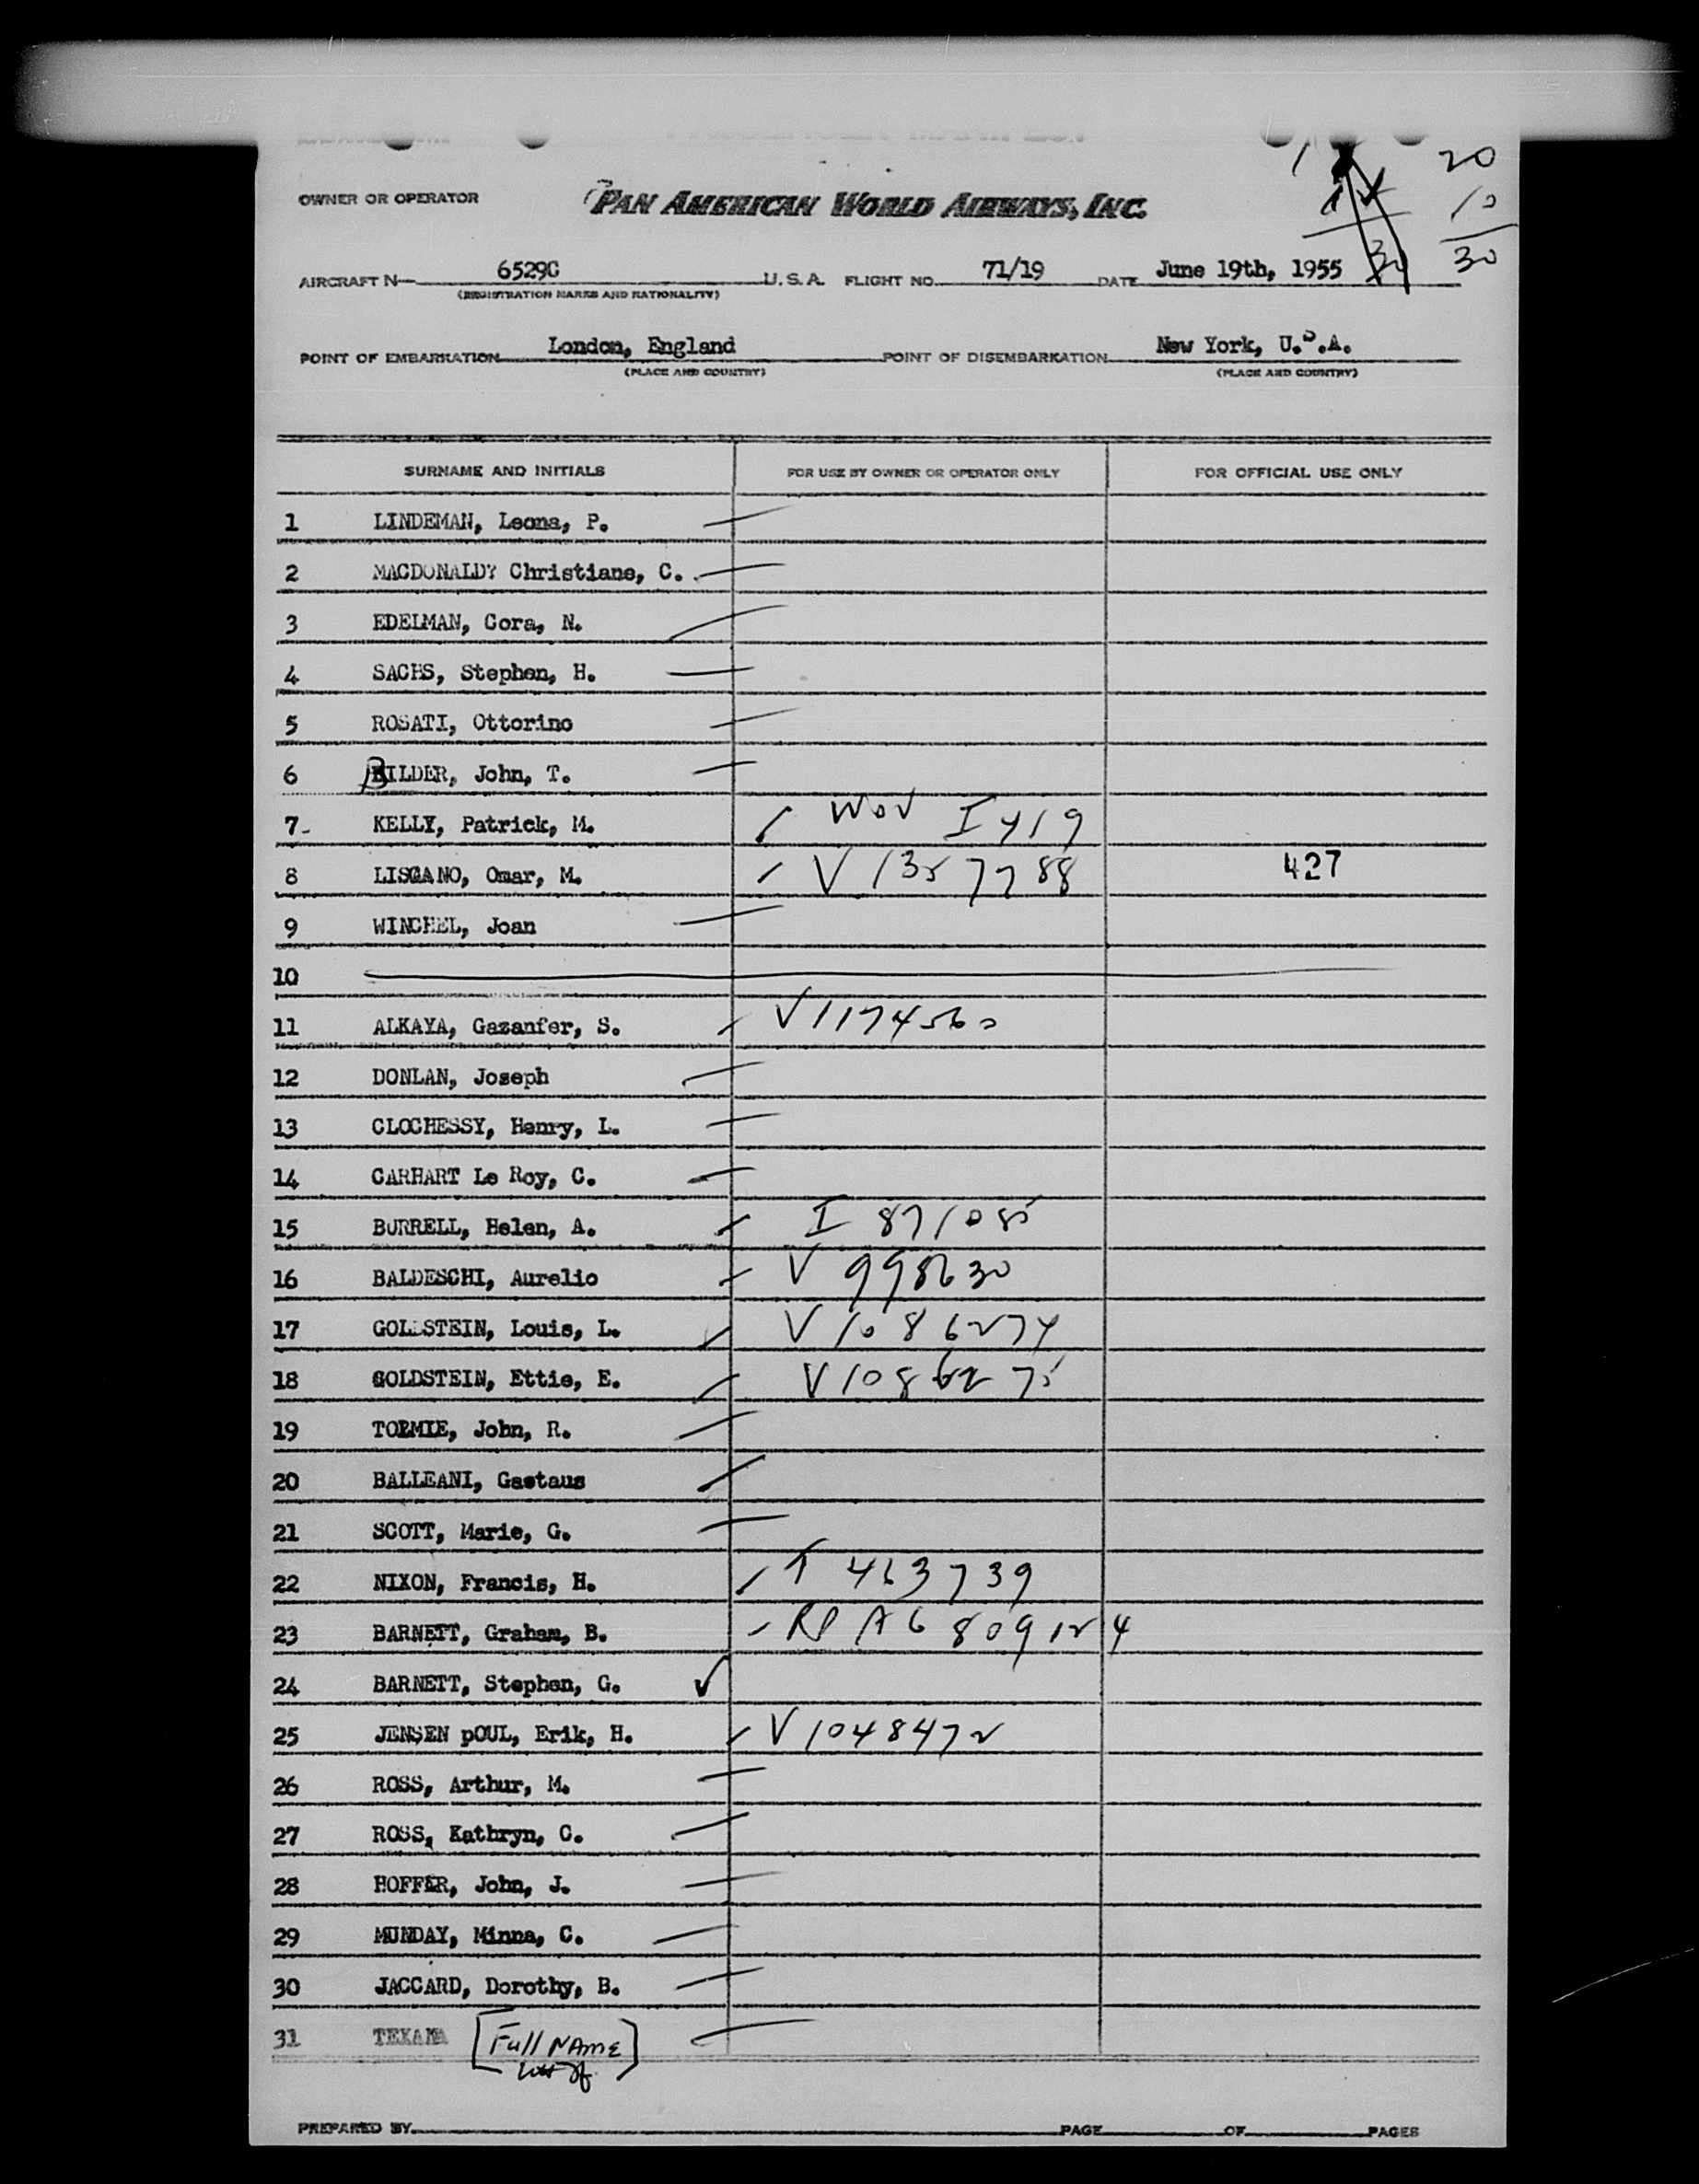 20
10
30
30
OWNER OR OPERATOR PAN AMERICAN WORLD AIRWAYS, INC.
AIRCRAFT N— 6529C U. S. A. FLIGHT NO. 71/19 DATE June 19th, 1955
(REGISTRATION MARKS AND NATIONALITY)
POINT OF EMBARKATION London, England POINT OF DISEMBARKATION New York, U.S.A.
(PLACE AND COUNTRY) (PLACE AND COUNTRY)
SURNAME AND INITIALS FOR USE BY OWNER OR OPERATOR ONLY FOR OFFICIAL USE ONLY
1 LINDEMAN, Leona, P.
2 MACDONALDY Christiane, C.
3 EDELMAN, Cora, N.
4 SACHS, Stephen, H.
5 ROSATI, Ottorino
6 BILDER, John, T.
7- KELLY, Patrick, M. I 419
8 LISCANO, Omar, M. V 1357788 427
9 WINCHEL, Joan
10
11 ALKAYA, Gazanfer, S. V1174560
12 DONLAN, Joseph
13 CLOCHESSY, Henry, L.
14 CARHART Le Roy, C.
15 BURRELL, Helen, A. I 871085
16 BALDESCHI, Aurelio V 998630
17 GOLDSTEIN, Louis, L. V 1086274
18 GOLDSTEIN, Ettie, E. V 1086275
19 TORMIE, John, R.
20 BALLEANI, Gaetaus
21 SCOTT, Marie, G.
22 NIXON, Francis, H. I 463739
23 BARNETT, Graham, B. RP A6 809124
24 BARNETT, Stephen, G. ✓
25 JENSEN pOUL, Erik, H. V 1048472
26 ROSS, Arthur, M.
27 ROSS, Kathryn, C.
28 HOFFER, John, J.
29 MUNDAY, Minna, C.
30 JACCARD, Dorothy, B.
31 TEXANA [Full NAME
PREPARED BY PAGE OF PAGES